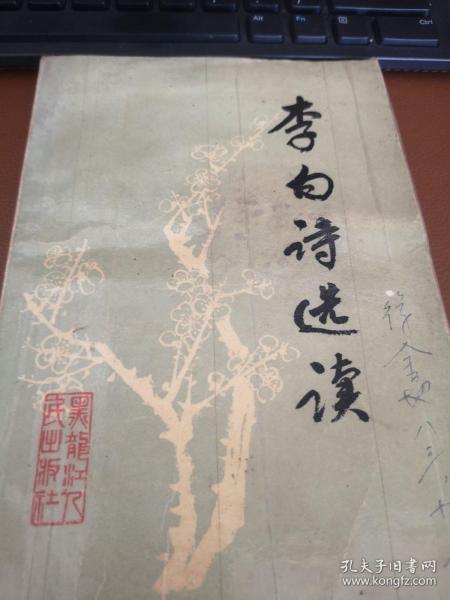 李白诗选读
黑龙江人
民出版社
八三.十
孔夫子旧书网
www.kongfz.com
Alt
Fn
Ctrl